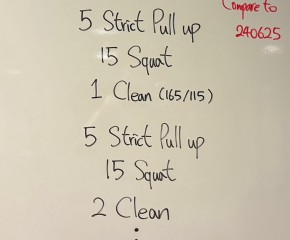 Compare to
240625
5 Strict Pull up
15 Squat
1 Clean (165/115)
5 Strict Pull up
15 Squat
2 Clean